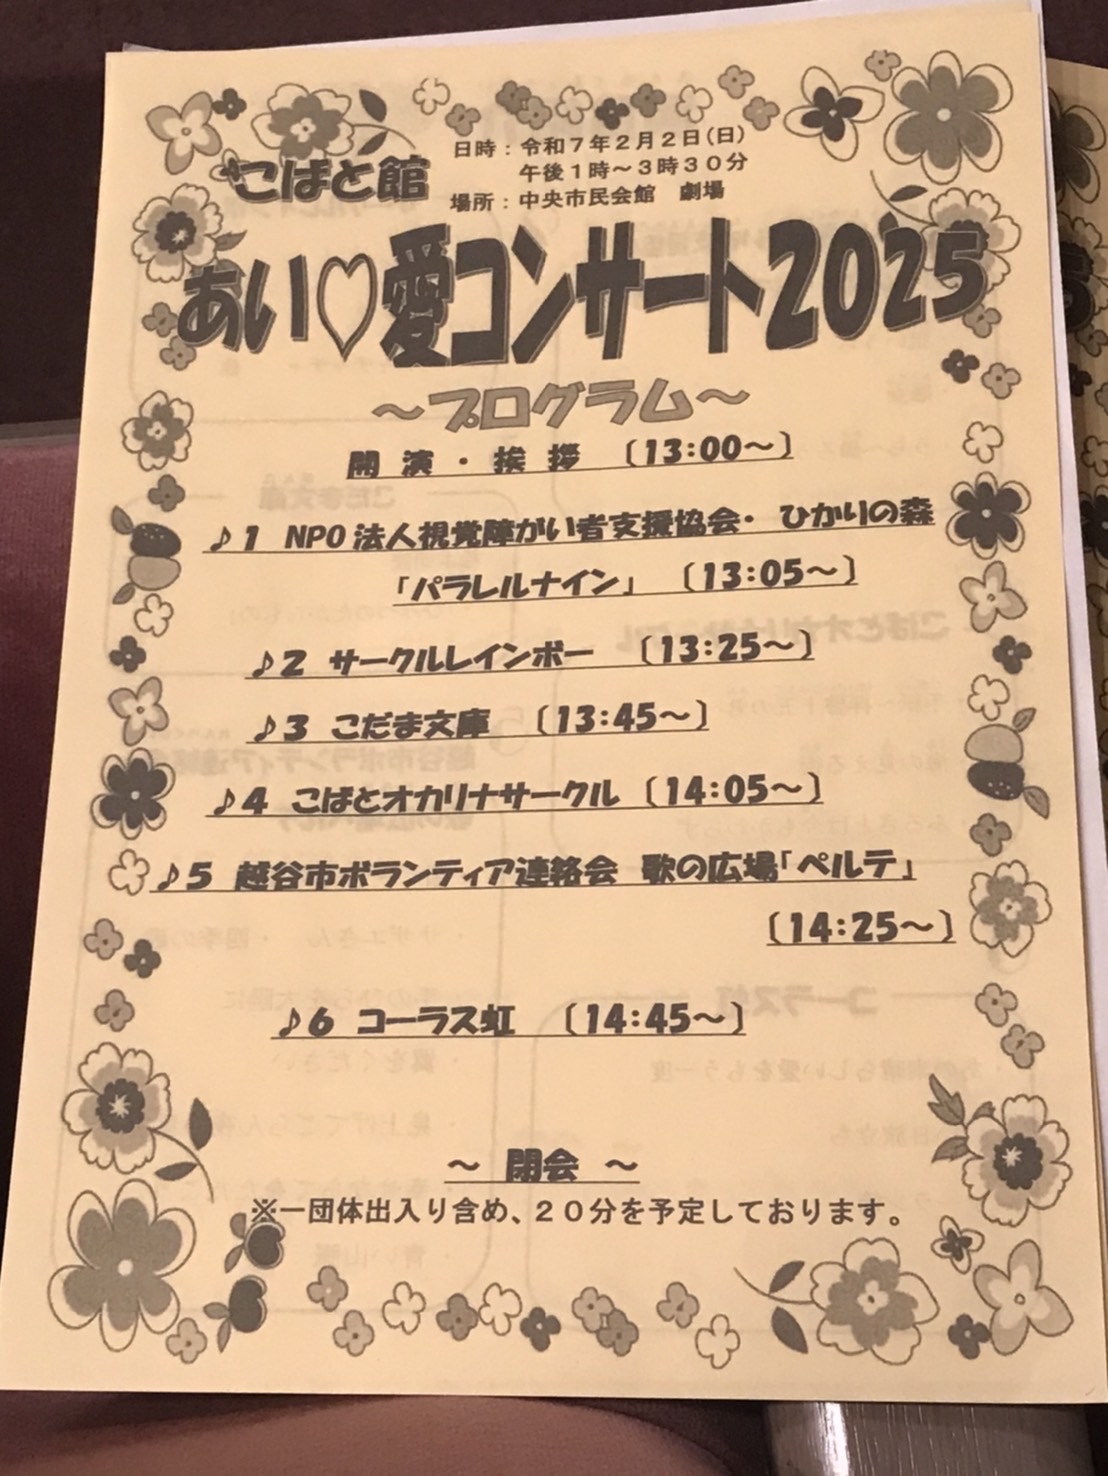 日時：令和７年２月２日(日)
午後１時～３時３０分
場所：中央市民会館　劇場
こばと館
あい♡愛コンサート2025
～プログラム～
開 演 ・ 挨 拶 〔13:00～〕
♪1 NPO法人視覚障がい者支援協会・ ひかりの森
「パラレルナイン」 〔13:05～〕
♪2 サークルレインボー 〔13:25～〕
♪3 こだま文庫 〔13:45～〕
♪4 こばとオカリナサークル〔14:05～〕
♪5 越谷市ボランティア連絡会 歌の広場「ペルテ」
〔14:25～〕
♪6 コーラス虹 〔14:45～〕
～ 閉会 ～
※一団体出入り含め、２０分を予定しております。